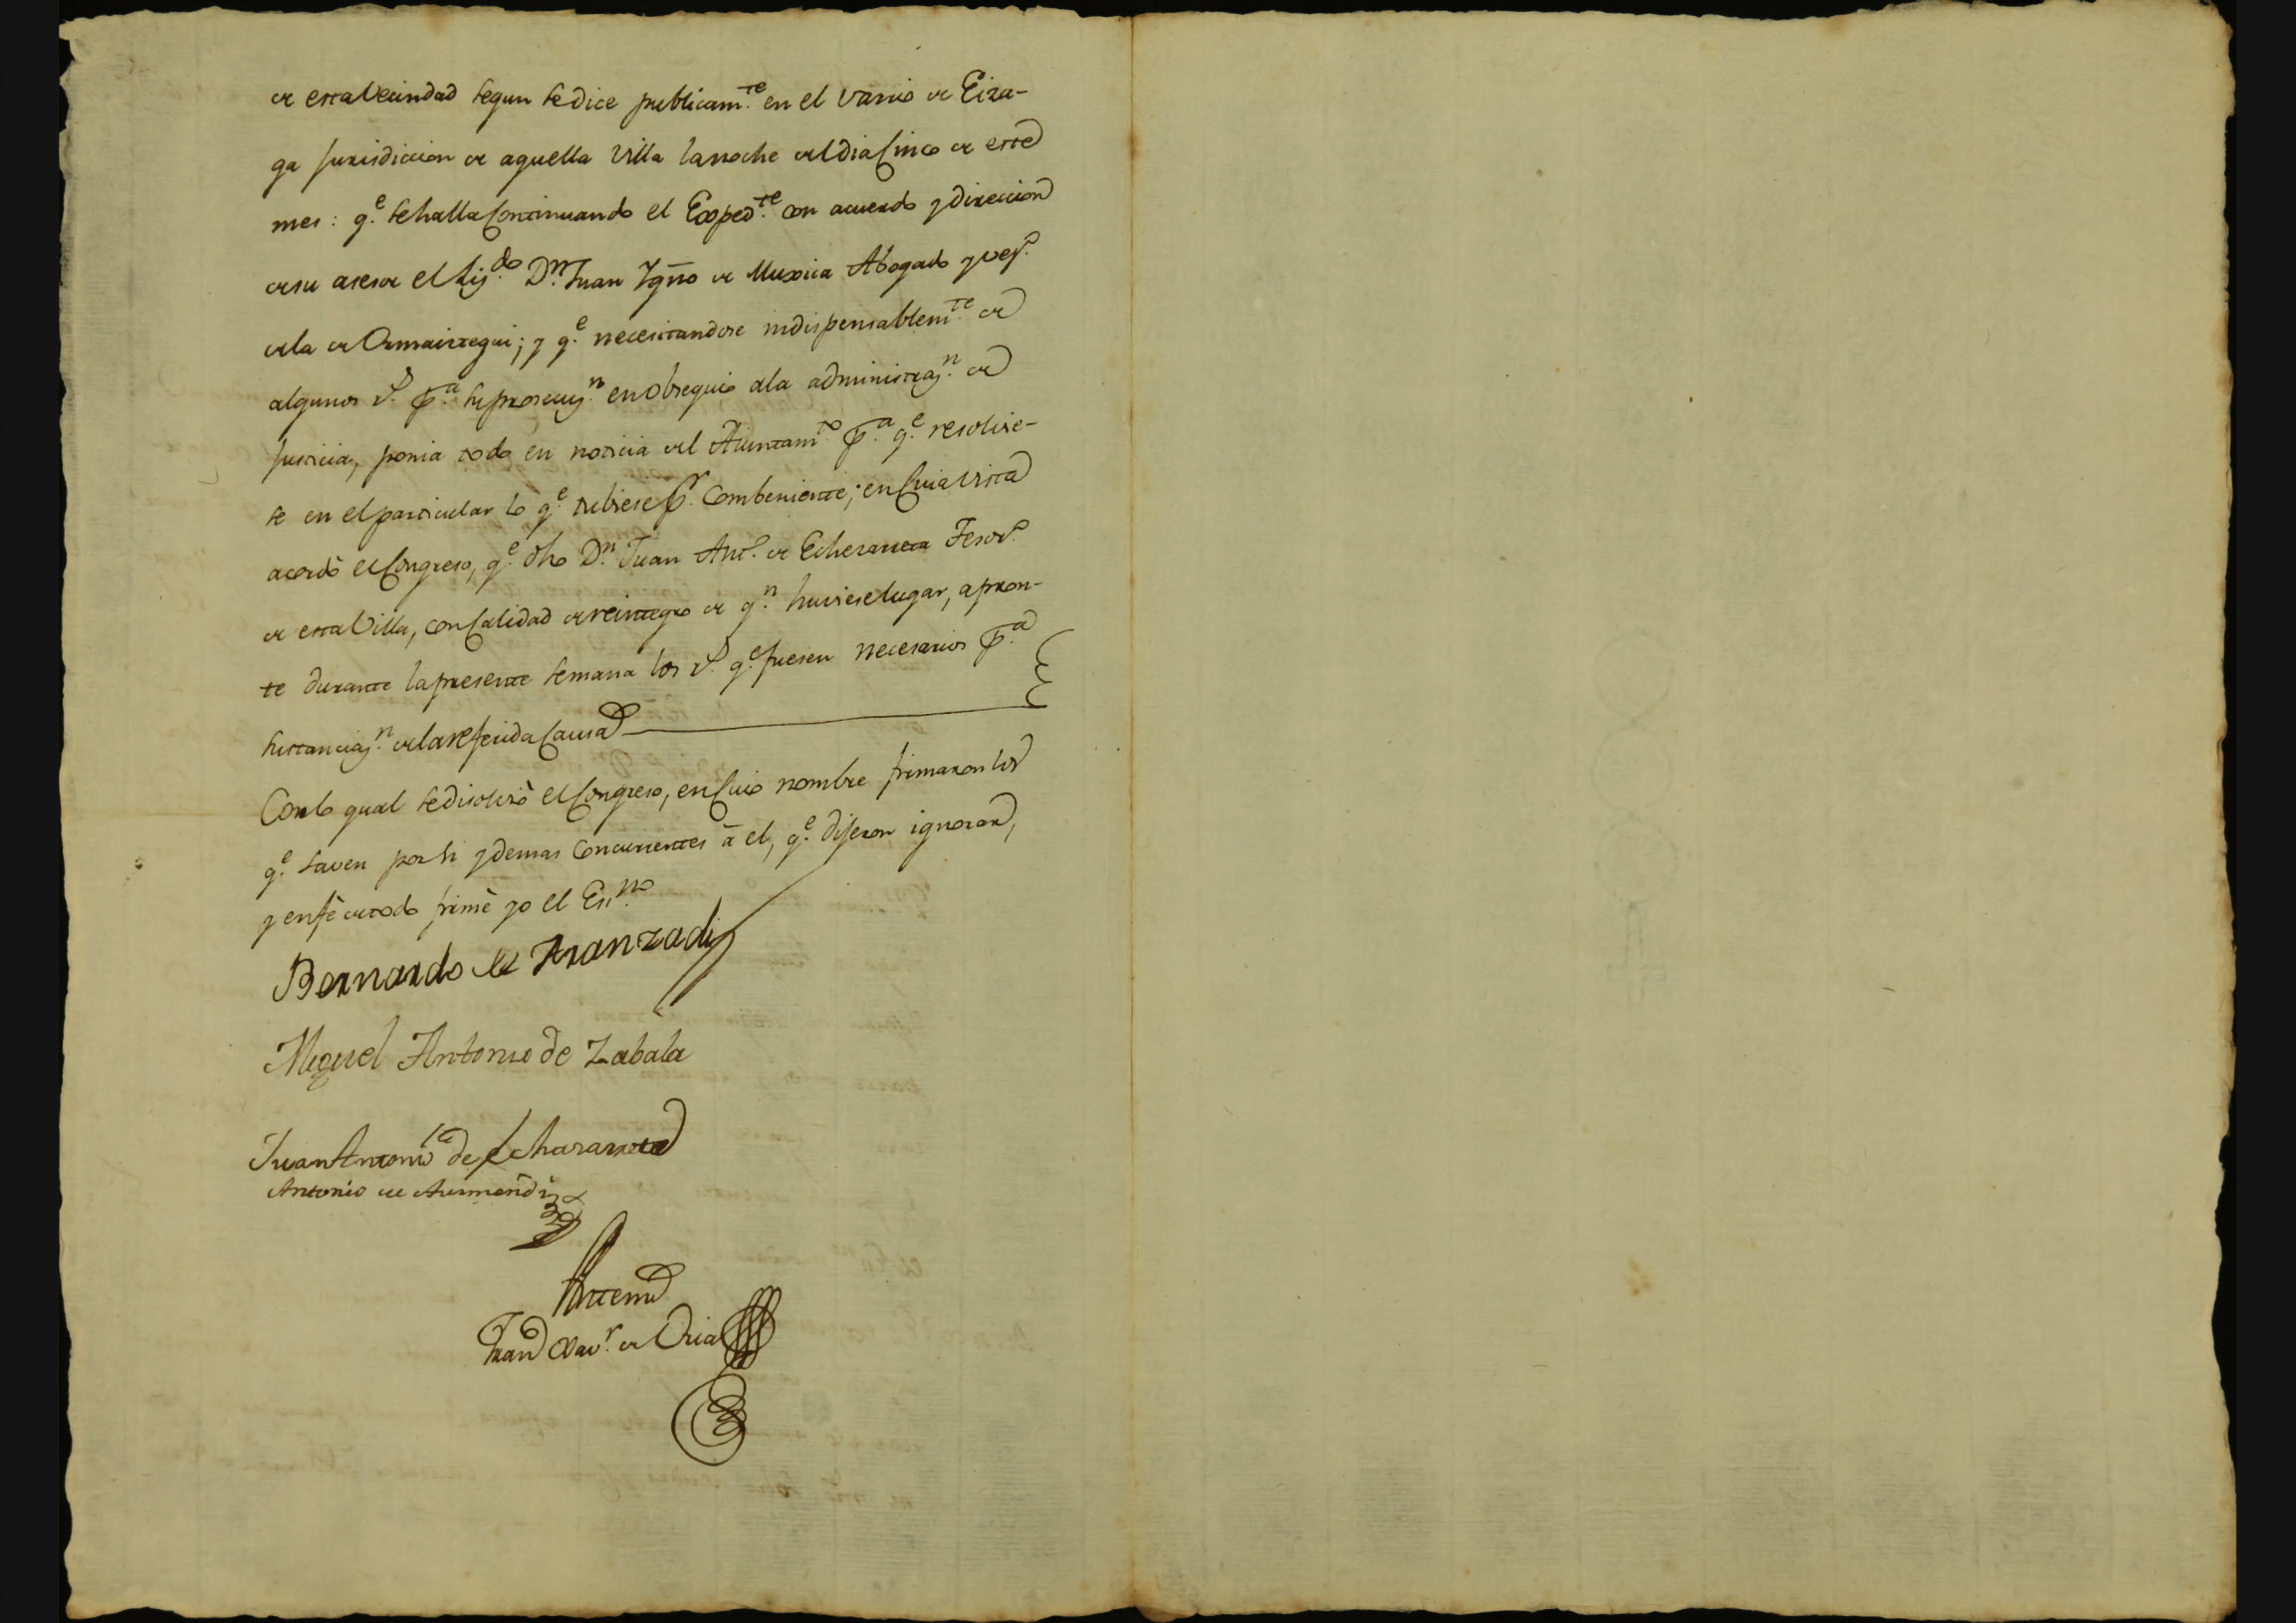 de esta Vecindad segun se dice publicam.te en el varrio de Eiza-
ga Jurisdiccion de aquella Villa la noche del dia Cinco de este
mes: q.e se halla Continuando el Exped.te con acuerdo y direccion
de su asesor el Liz.do D.n Juan Ygn̄o de Muxica Abogado y vez.o
de la de Ormaiztegui; y q.e necesitandose indispensablem.te de
algunos r.s p.a su prosecuz.n en obsequio a la administraz.n de
Justicia, ponia todo en noticia del Aiuntam.to p.a q.e resolvie-
se en el particular lo q.e tubiese p.r Combeniente; en Cuia Vista
acordò el Congreso, q.e dho D.n Juan Ant.o de Echezarreta Tesor.o
de esta Villa, con Calidad de reintegro de q.n huviese lugar, apron-
te durante la presente semana los r.s q.e fuesen necesarios p.a
sustanciaz.n de la referida Causa
Con lo qual se disolviò el Congreso, en Cuio nombre firmaron los
q.e saven por si y demas Concurrentes à el, q.e dijeron ignorar,
y en fè de todo firmè yo el Es.no
Bernardo de Aranzadi
Miguel Antonio de Zabala
Juan Antonio de Echazarreta
Antonio de Aurmendi
Antemi
Fran.co Xav.r de Oria